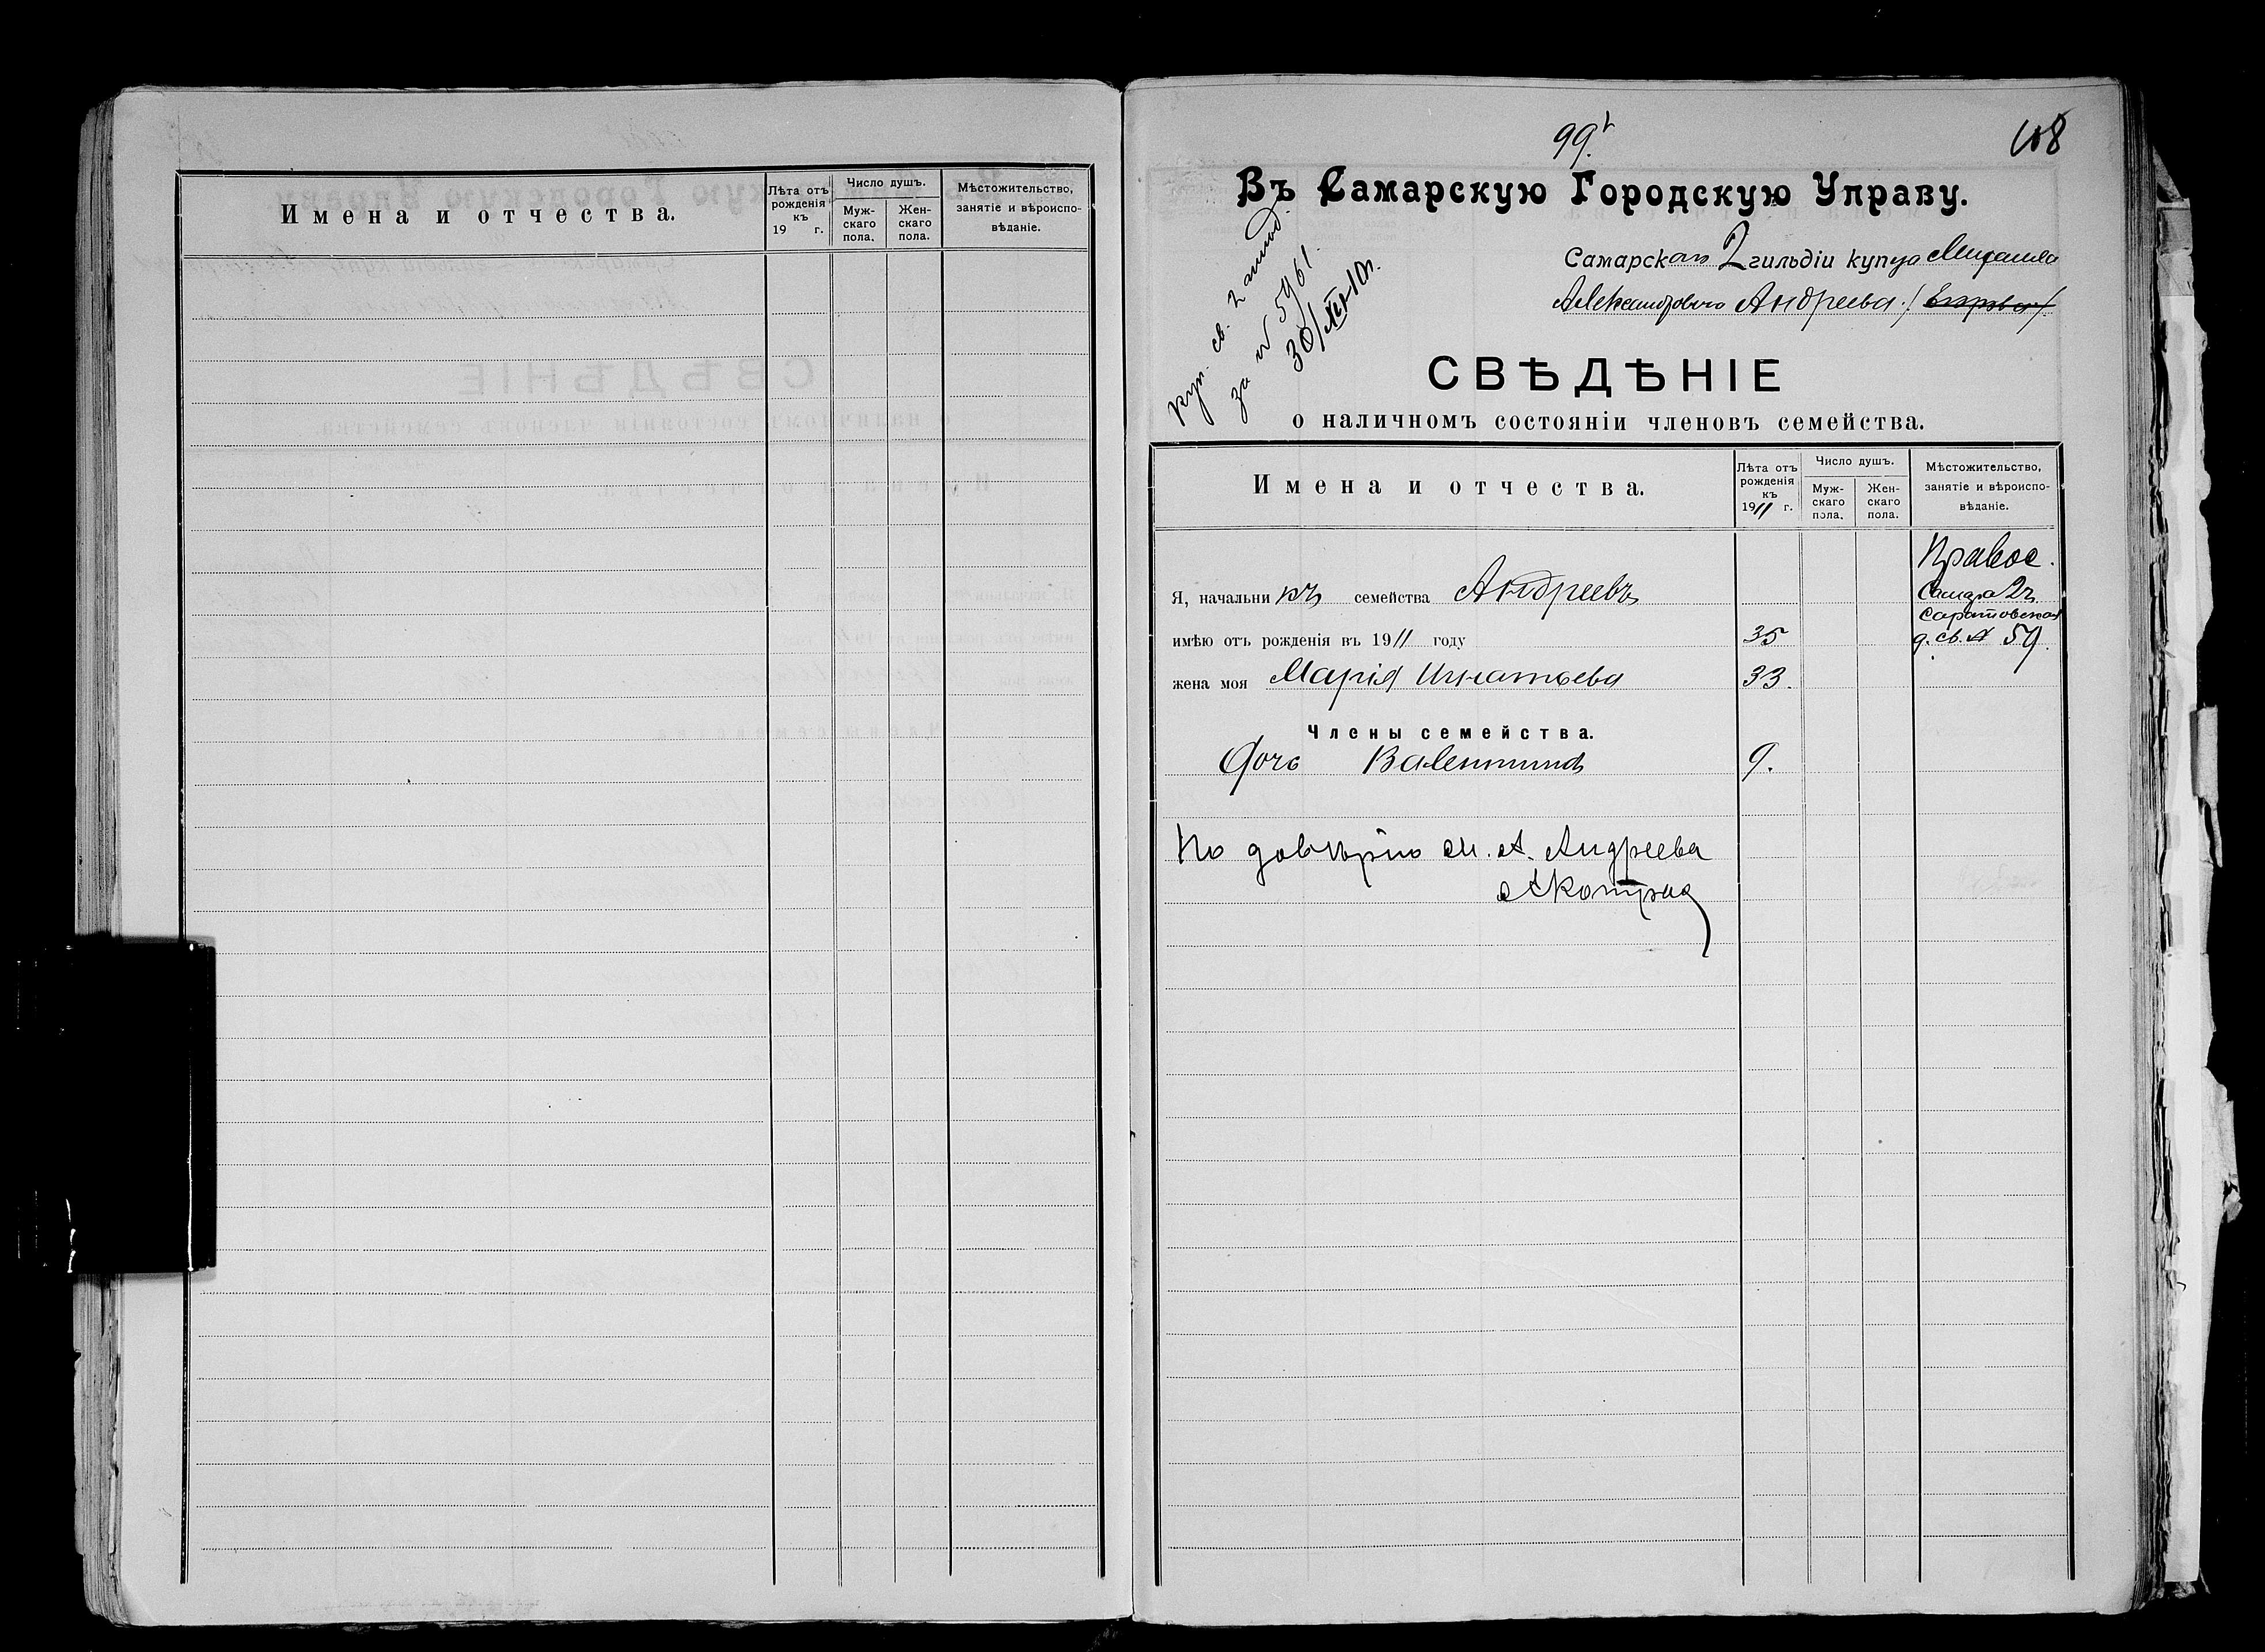 Имена и отчества.
Лѣта отъ рожденія къ 19 г.
Число душъ.
Мужскаго пола.
Женскаго пола.
Мѣстожительство, занятіе и вѣроисповѣданіе.
99.
108
Въ Самарскую Городскую Управу.
Самарскаго 2 гильдіи купца Михаила
Александровича Андреева.
куп. св. 2
за № 5961.
30/XII-10 г.
СВѢДѢНІЕ
о наличномъ состояніи членовъ семейства.
Имена и отчества.
Лѣта отъ рожденія къ 1911 г.
Число душъ.
Мужскаго пола.
Женскаго пола.
Мѣстожительство, занятіе и вѣроисповѣданіе.
Правос.
Я, начальникъ семейства Андреевъ
Самара 2 ч.
Саратовская
имѣю отъ рожденія въ 1911 году 35
д. св. № 59.
жена моя Марія Игнатьева 33.
Члены семейства.
Дочь Валентина 9.
По довѣрію М. А. Андреева